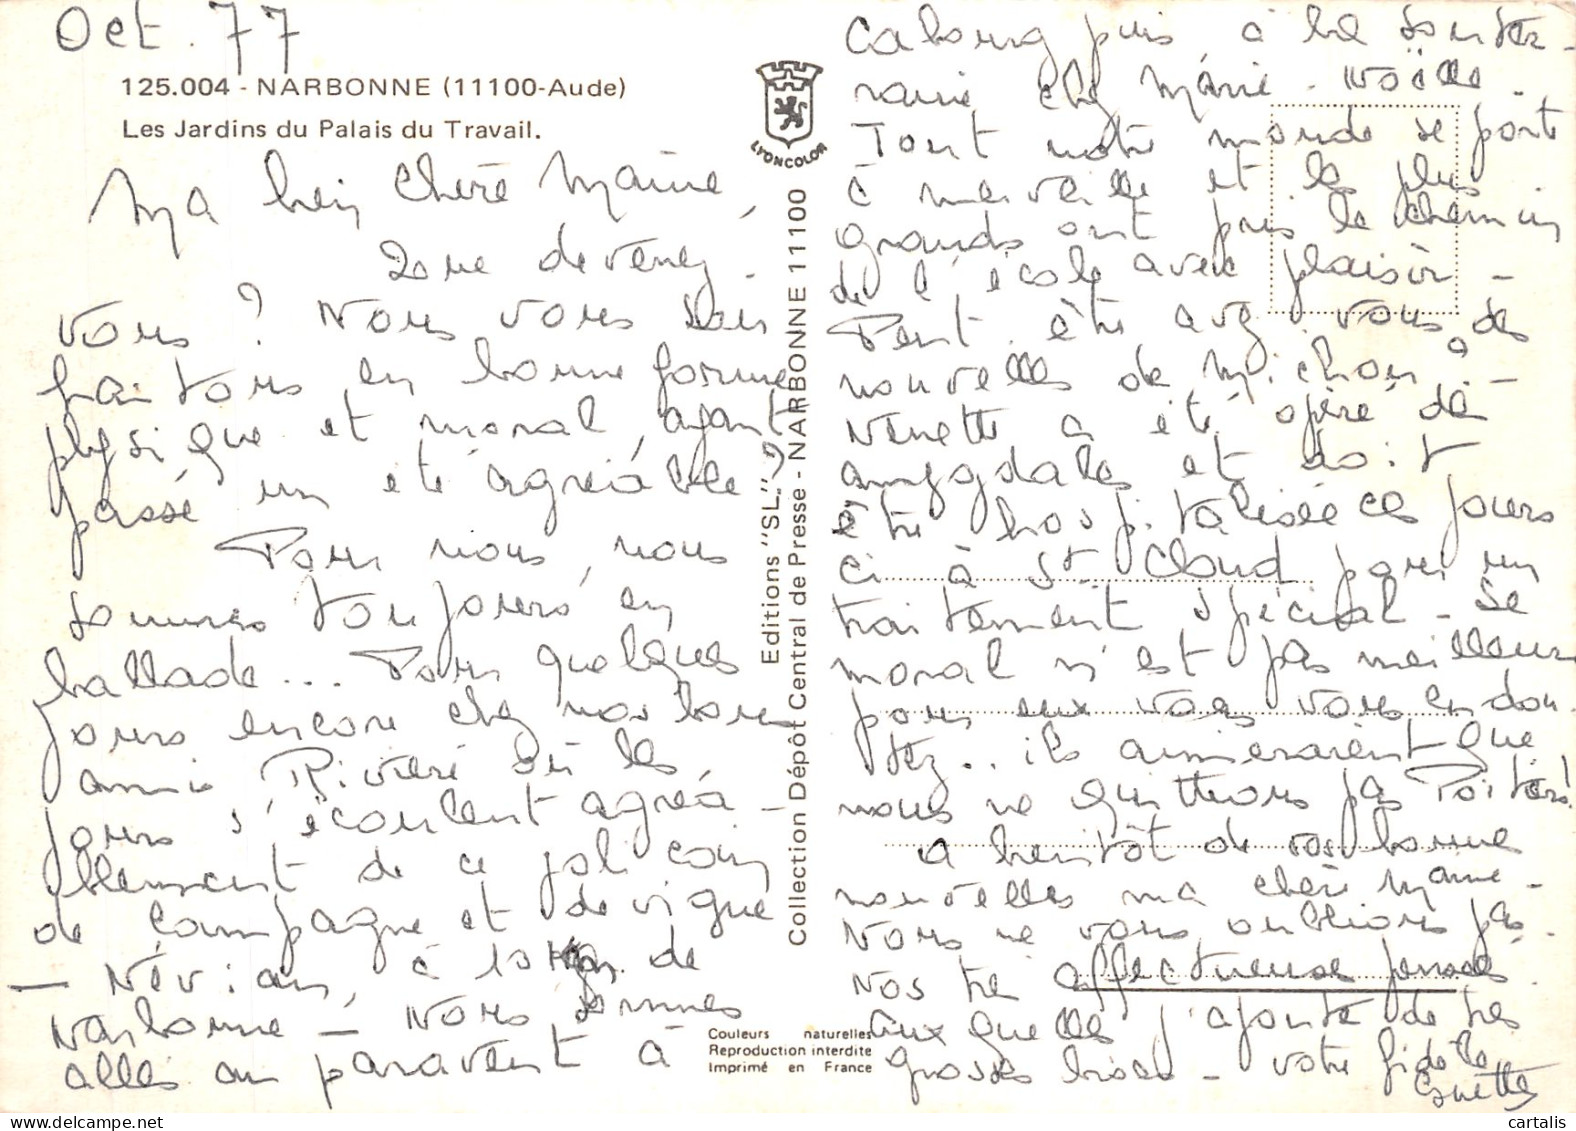 Oct. 77
125.004 - NARBONNE (11100-Aude)
Les Jardins du Palais du Travail.
Ma bien chère Maïnie,
Que devenez-
vous ? Nous vous sou
haitons en bonne forme
physique et moral, ayant
passé un été agréable ?
Pour nous, nous
sommes toujours en
ballade... Pour quelques
jours encore chez nos bons
amis Rivière où les
jours s'écoulent agréa-
blement de ce joli coin
de campagne et de vigne
- Névian, à 10 km de
Narbonne - Nous sommes
allés auparavent à
Editions "SL"
Collection Dépôt Central de Presse - NARBONNE 11100
LYONCOLOR
Couleurs naturelles
Reproduction interdite
Imprimé en France
Cabourg puis à la
chez Marie-Noëlle.
Tout notre monde se porte
à merveille et les plus
grands ont pris le chemin
de l'école avec plaisir -
Peut être avez vous des
nouvelles de Michou ? -
Ninette a été opéré des
amygdales et doit
être hospitalisée ces jours
ci à St Cloud pour un
traitement spécial - Le
moral n'est pas meilleur
pour eux vous vous en dou-
tez.. ils aimeraient que
nous ne quittions pas Poitiers!
A bientôt de vos bonnes
nouvelles ma chère Maïnie -
Nous ne vous oublions pas.
Nos très affectueuse pensées
auxquelles j'ajoute de très
grosses bises - votre fidèle